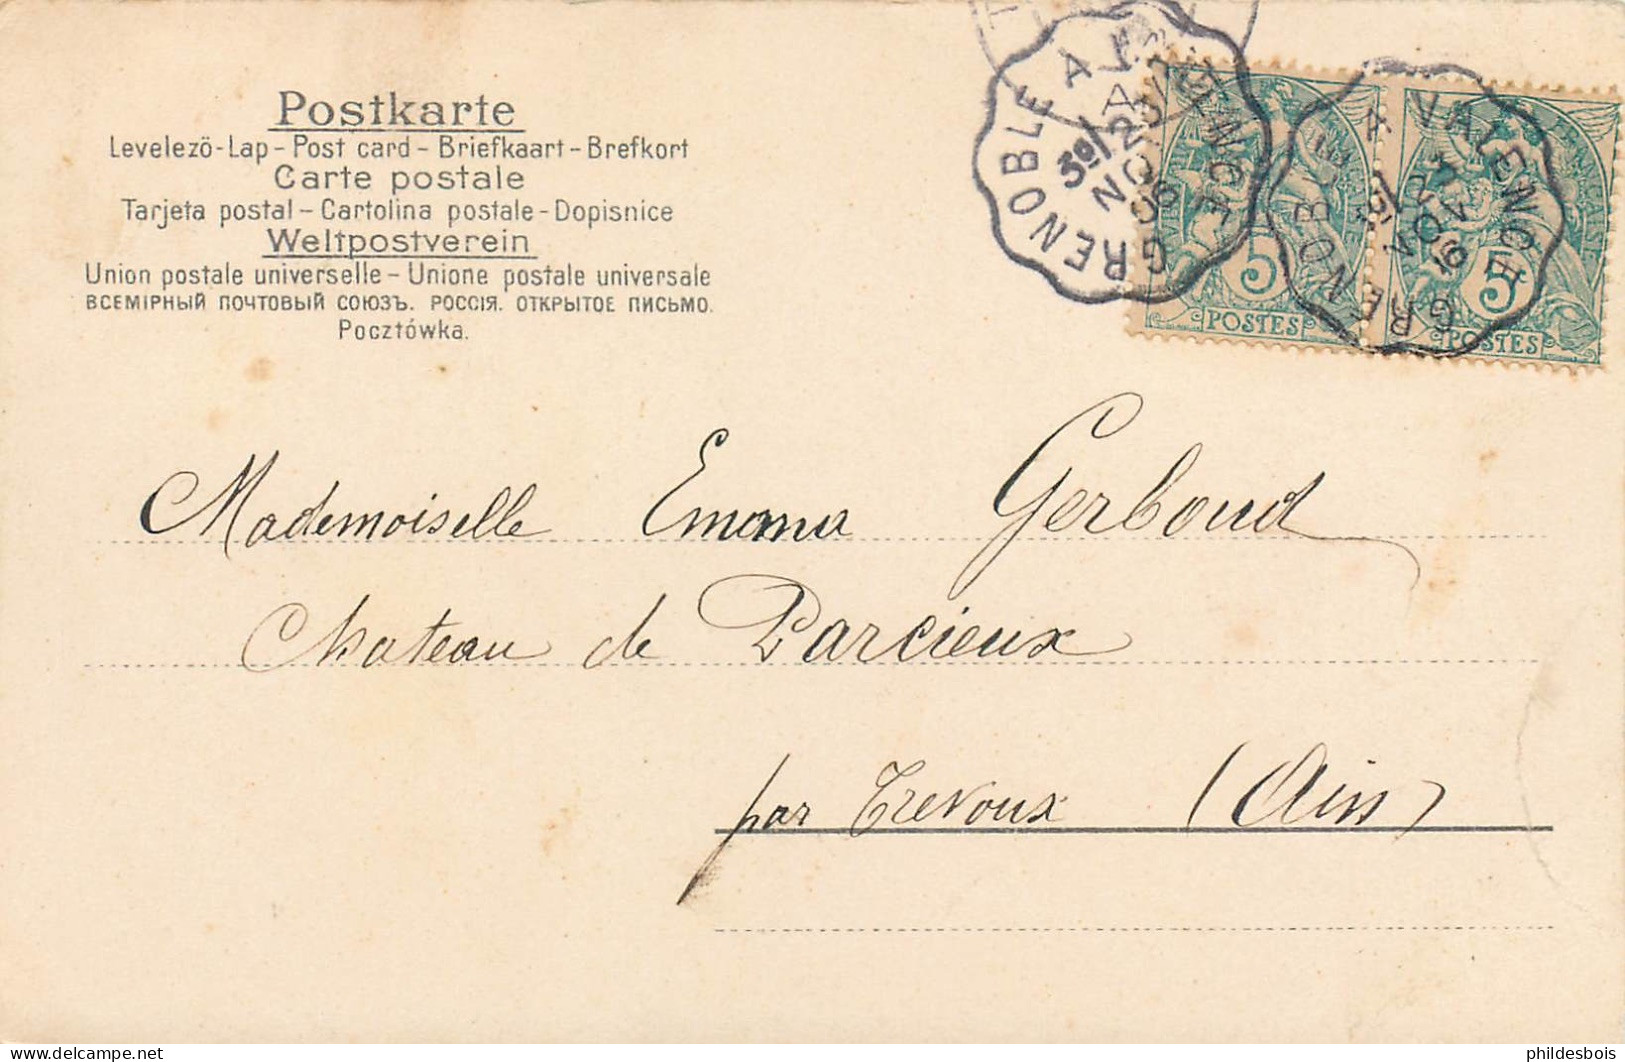 Postkarte
Levelezö-Lap - Post card - Briefkaart - Brefkort
Carte postale
Tarjeta postal - Cartolina postale - Dopisnice
Weltpostverein
Union postale universelle - Unione postale universale
ВСЕМІРНЫЙ ПОЧТОВЫЙ СОЮЗЪ. РОССІЯ. ОТКРЫТОЕ ПИСЬМО.
Pocztówka.
GRENOBLE A VALENCE
23
NOV
GRENOBLE A VALENCE
NOV
5
POSTES
5
POSTES
Mademoiselle Emma Gerboud
Chateau de Parcieux
par Trevoux (Ain)
phildesbois